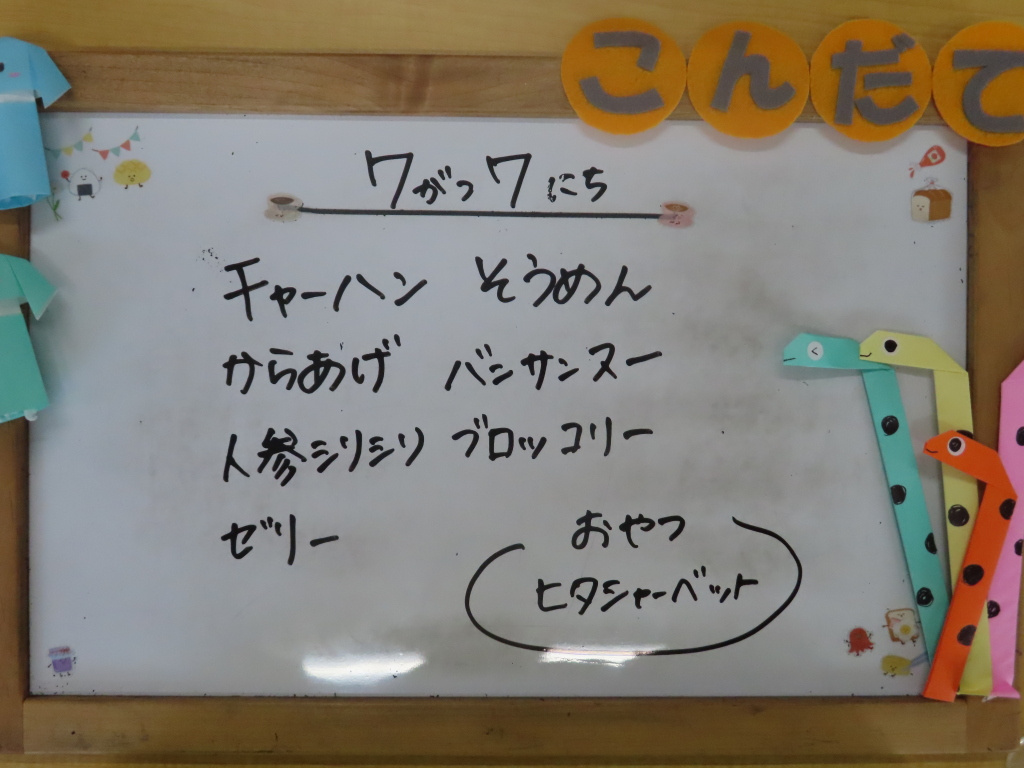 こんだて
7がつ7にち
チャーハン そうめん
からあげ バンサンスー
人参シリシリ ブロッコリー
ゼリー
おやつ
ヒタシャーベット